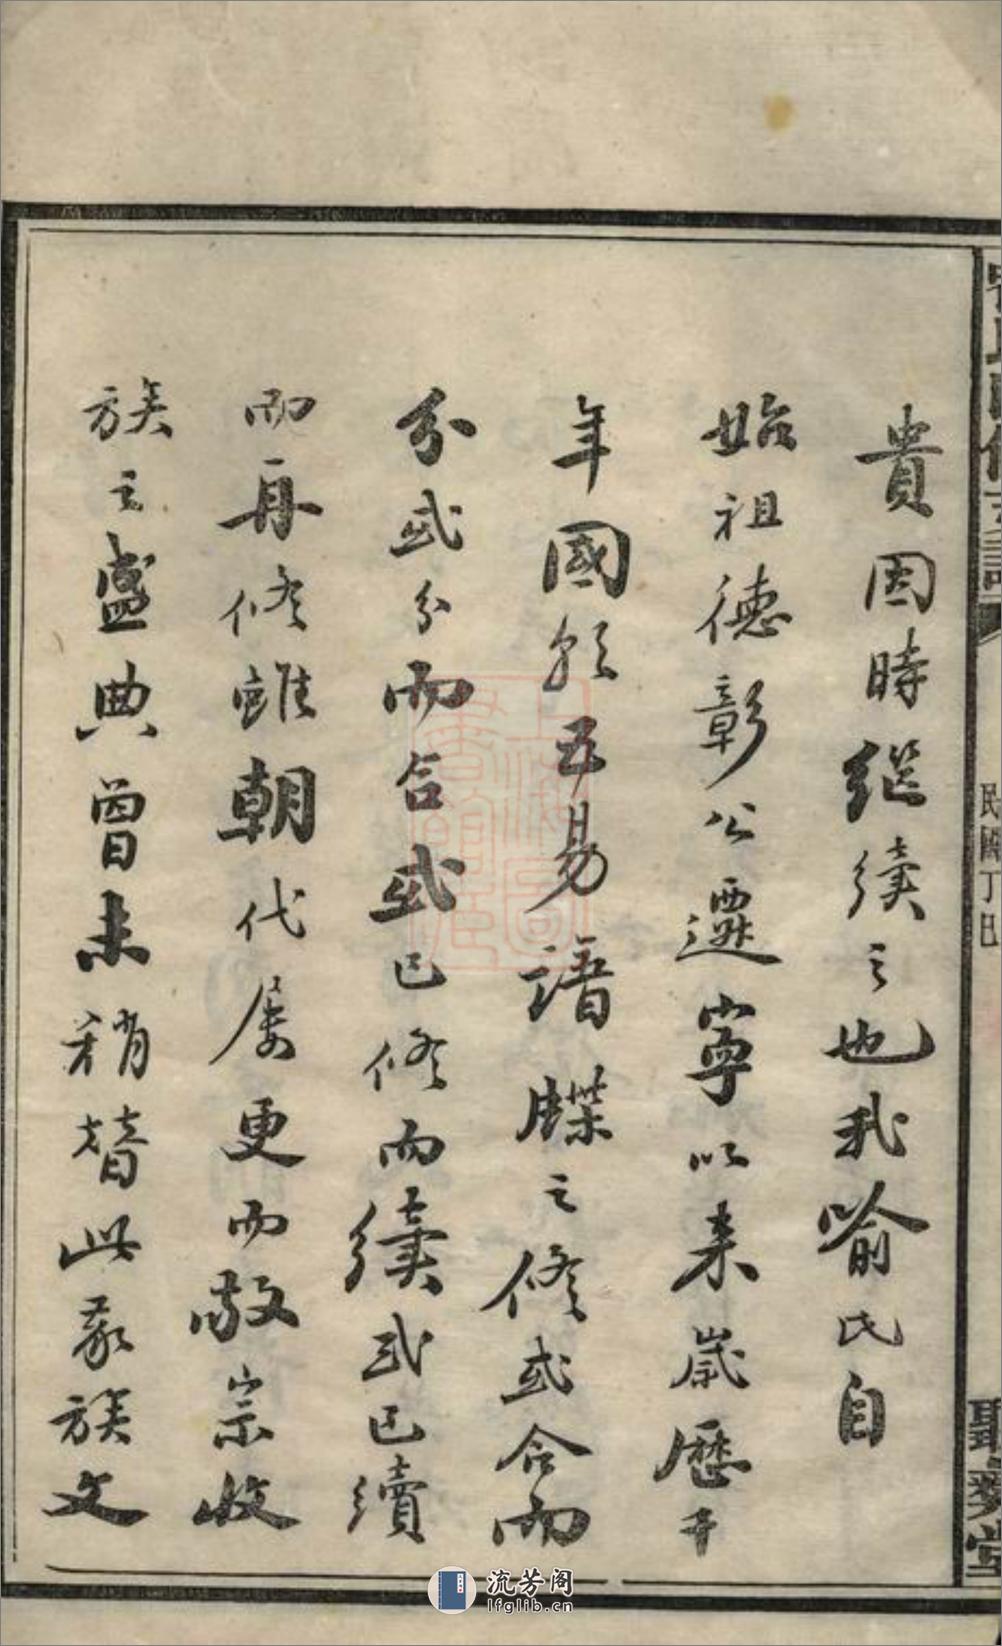 貴因時繼續之也我喻氏自
始祖德彰公遷寧以来歲歷千
年國朝五易譜牒之修或合而
分或分而合或已修而續或已續
而再修雖朝代屡更而敬宗收
族之盛典曾未稍替此我族文
民國丁巳
聚堂
流芳阁
lfglib.cn